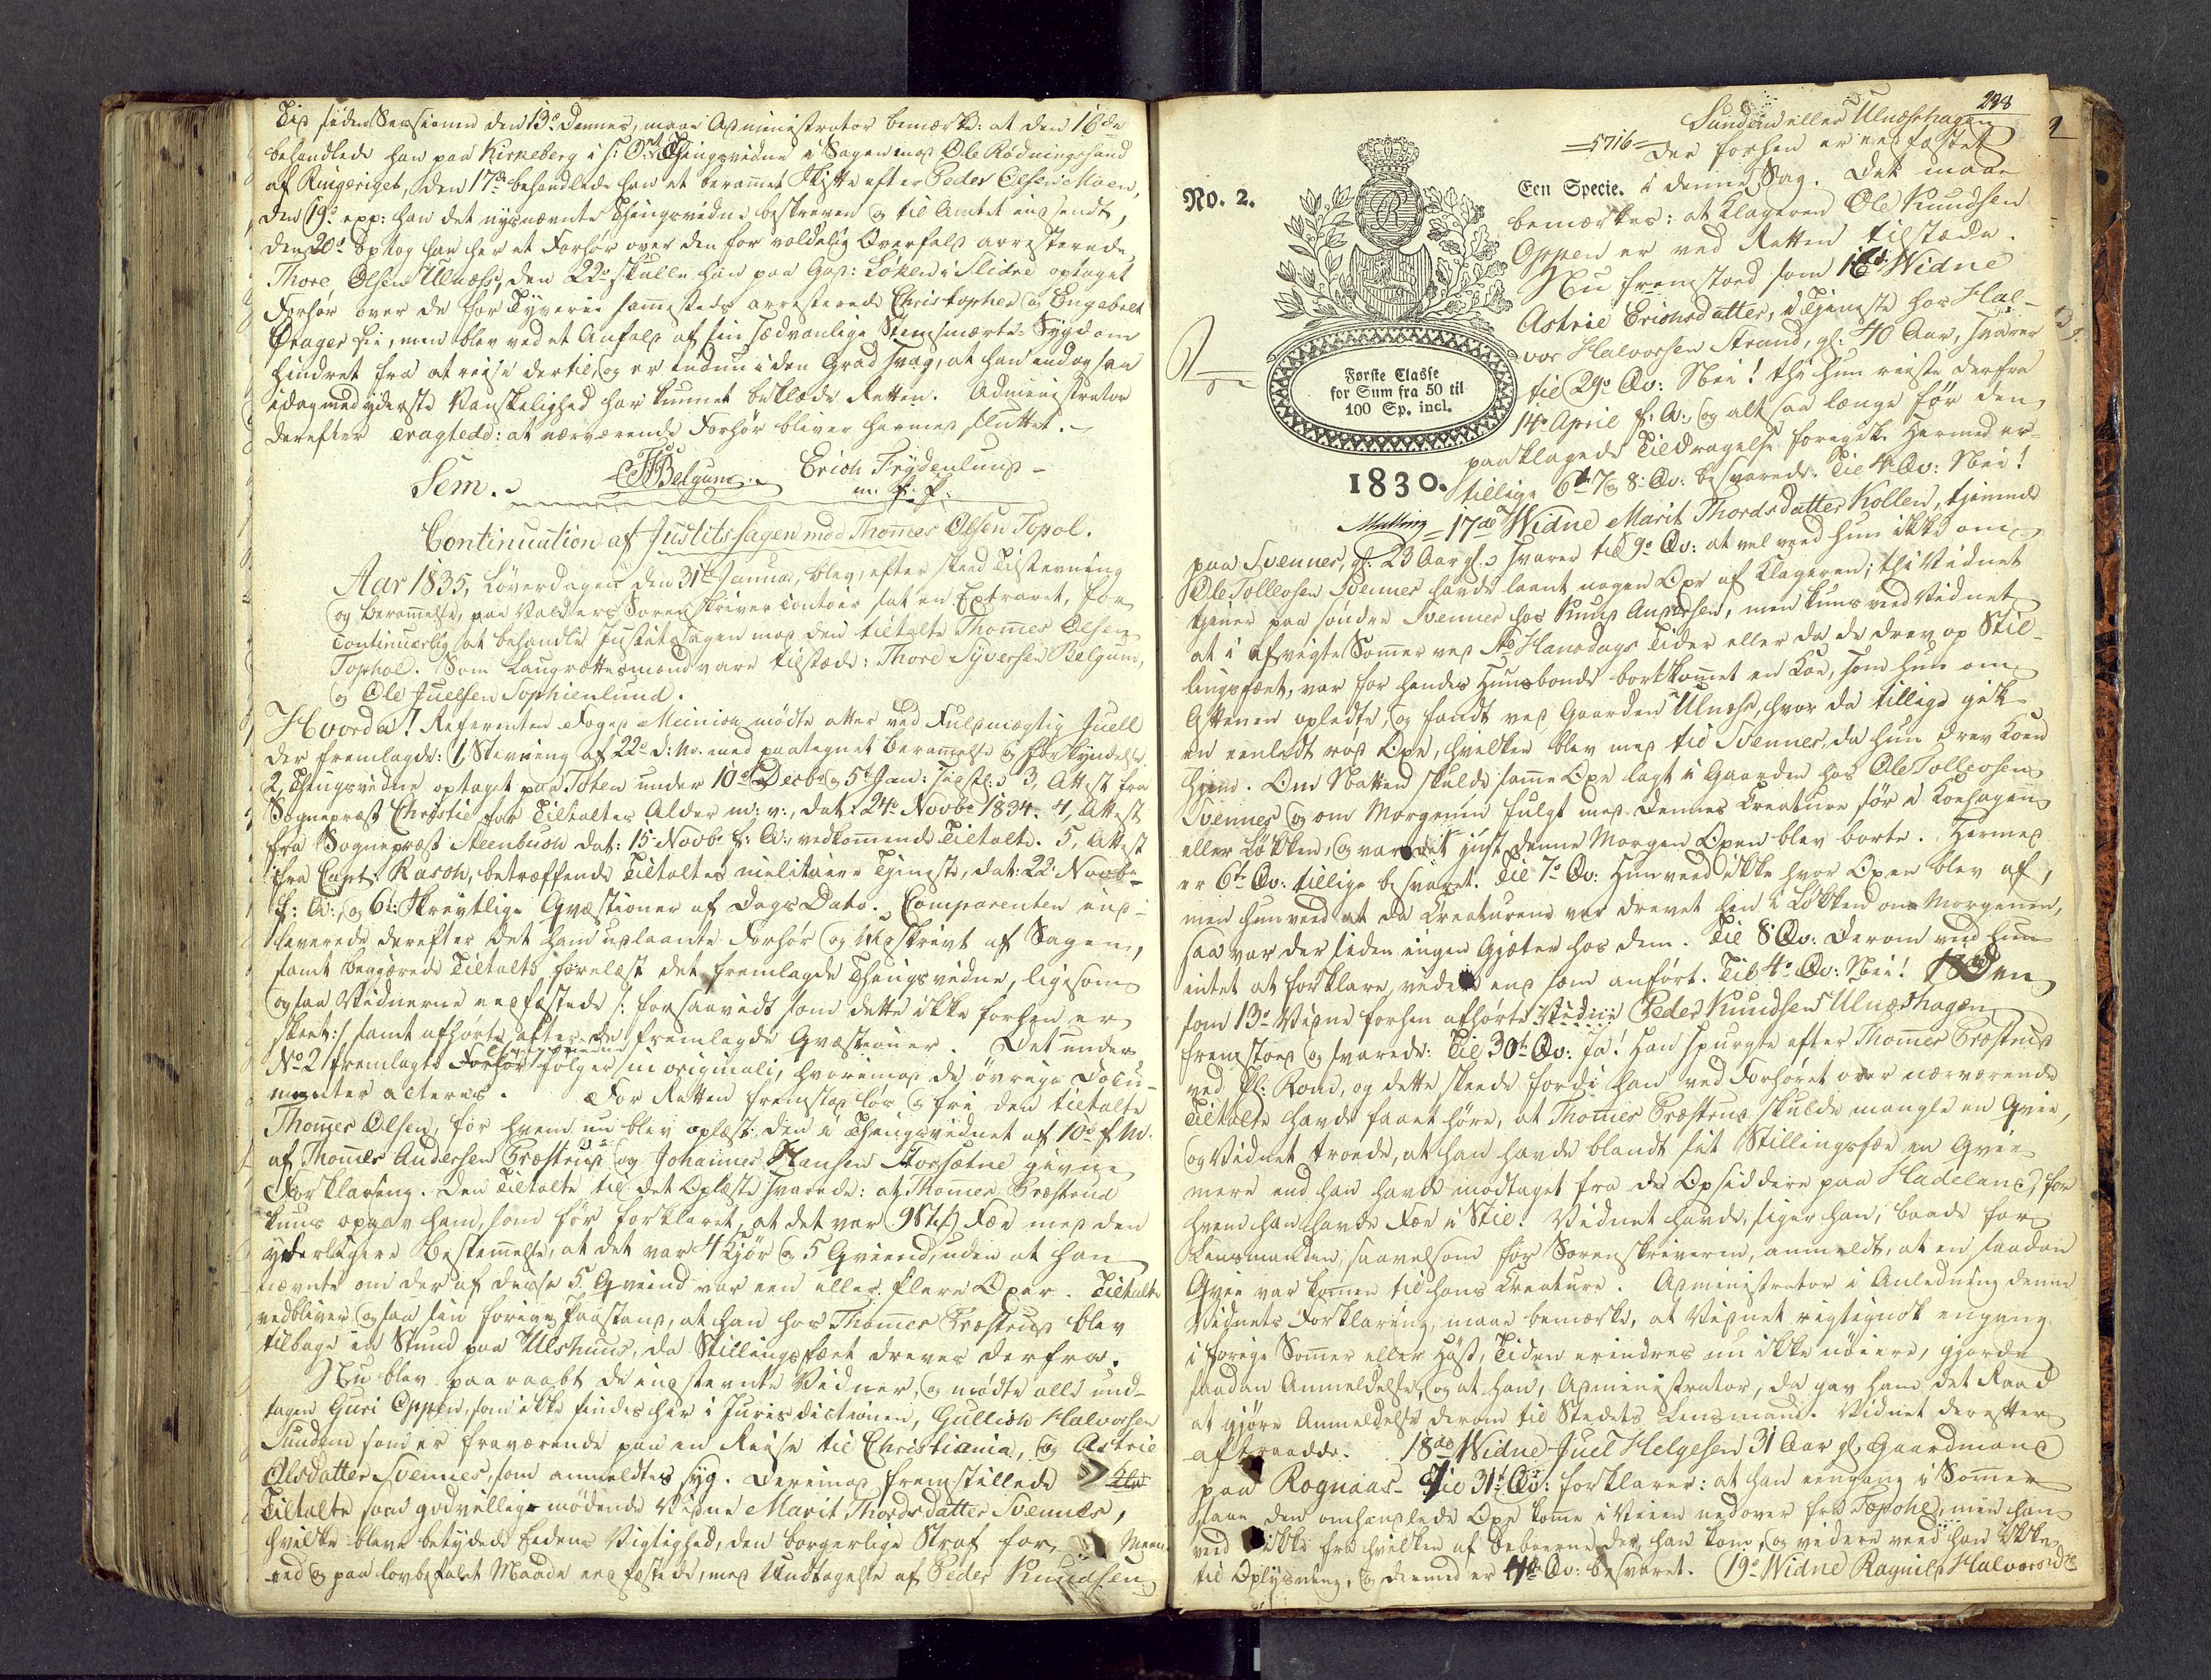 Tid siden Sessionen den 13de dennes, maae Administrator bemærke: at den 16de
behandlede han paa Kirkeberg i s: Ourd: Thingsvidne i Sagen mod Ole Rødningsand
af Ringeriget, den 17de behandlede han et beramet Skifte efter Peder Olsen Moen,
den 19de exp: han det nysnævnte Thingsvidne beskreven og til Amtet indsendt,
den 20de optog han her et Forhør over den for voldelig Overfald arresterede
Thore Olsen Ulnæss, den 22de skulle han paa Gad: Løken i Slidre optaget
Forhør over de for Tyverie sammesteds arresterede Christopher og Engebret
Prager Lie, men blev ved et Anfald af sin sædvanlige Steensmærte Sygdom
hindret fra at reise dertil, og er endnu i den Grad svag, at han endog saa
idag med yderste Vanskelighed har kunnet beklæde Retten. Administrator
derefter eragtede: at nærværende Forhør bliver hermed sluttet.
Sem. Belgum. Erich Frydenlund
m. f. P.
Continuation af Justitssagen mod Thomes Olsen Topol.
Aar 1835, Løverdagen den 31te Januar, blev, efter skeed Tilstevning
og Beramelse, paa Valders Sorenskrivercontoir sat en Extraret, for
continuerlig at behandle Justitssagen mod den tiltalte Thomes Olsen
Tophol. Som Laugrettesmænd vare tilstæde: Thore Syversen Belgum,
og Ole Juelsen Sophienlund.
Hvorda! Referenten Foged Meinich mødte atter ved Fuldmægtig Juell
der fremlagde: 1, Stevning af 22de d: M. med paategnet Beramelse og Forkyndelse.
2, Thingsvidne optaget paa Toten under 10de Decbr og 5te Jan: sidstl: 3, Attest fra
Sognepræst Christie for Tiltaltes Alder m: v:, dat: 24de Novbr 1834. 4, Attest
fra Sognepræst Steenbuch dat: 15 Novbr f: A:, vedkommende Tiltalte. 5, Attest
fra Capt: Rasch, betræffende Tiltaltes militaire Tjeneste, dat: 22 Novbr
f: A:, og 6: Skrevtlige Qvæstioner af Dags Dato. Comparenten ind-
leverede derefter det ham udlaante Forhør og Udskrivt af Sagen,
samt begjerede Tiltalte forelæst det fremlagde Thingsvidne, ligesom
ogsaa Vidnerne eedfæstede /: forsaavidt som dette ikke forhen er
skeet :/ samt afhørte efter de fremlagde Qvæstioner. Det under
No 2 fremlagte Thingsvidne følger in originali, hvorimod de øvrige Docu-
menter acteres. For Retten fremstod løs og frie den tiltalte
Thomes Olsen, for hvem nu blev oplæst den i Thingsvidnet af 10de f. M.
af Thomes Andersen Præstrud og Johannes Hansen Storsætne givne
Forklaring. Den Tiltalte til det Oplæste svarede: at Thomes Præstrud
kuns opgav ham, som før forklaret, at det var 9 Stk: Fæe med den
yderligere Bestemelse, at det var 4 Kjør og 5 Qviend, uden at han
nævnte om der af disse 5 Qviend var een eller flere Oxer. Tiltalte
vedbliver ogsaa sin forrige Paastand, at han hos Thomes Præstrud blev
tilbage en Stund paa Ulshuus, da Stillingsfæet dreves derfra.
Nu blev paaraabt de indstevnte Vidner, og mødte alle und-
tagen Guri Oppen, som ikke findes her i Jurisdictionen, Gullich Halvorsen
Sundem som er fraværende paa en Reise til Christiania, og Astrie
Olsdatter Svennes, som anmeldtes syg. Derimod fremstillede
Tiltalte som godvillig mødende Vidne Marit Thordsdatter Svennes,
hvilke bleve betydede Eedens Vigtighed, den borgerlige Straf for Meen-
eed og paa lovbefalet Maade eedfæstede, med Undtagelse af Peder Knudsen
298
Sundem eller Ulnæshagen
=5716= der forhen er eedfæstet
No. 2. Een Specie. i denne Sag. Det maae
bemærkes: at Klageren Ole Knudsen
Oppen er ved Retten tilstæde.
Nu fremstod som 16de Widne
Astrie Erichsdatter, i Tjeneste hos Hal-
vor Halvorsen Strand, gl: 40 Aar, svarer
til 29de Qv: Nei! thi hun reiste derfra
14de April f: A:, og altsaa længe før den
paaklagede Tildragelse foregik. Hermed er
tillige 6te 7 og 8: Qv: besvarede. Til 4: Qv: Nei!
Første Classe
for Sum fra 50 til
100 Sp. incl.
1830.
Malling = 17de Widne Marit Thordsdatter Kollen, tjenende
paa Svennes, gl: 23 Aar gl: svarer til 9de Qv: at vel veed hun ikke om
Ole Tollevsen Svennes havde laant nogen Oxe af Klageren; thi Vidnet
tjener paa søndre Svennes hos Knud Andersen, men kuns veed Vidnet
at i afvigte Sommer ved St Hansdags Tider eller da de drev op Stil-
lingsfæet, var for hendes Huusbonde bortkommet en Koe, som hun om
Aftenen opledte, og fandt ved Gaarden Ulnæss, hvor da tillige gik
en eenlædt rød Oxe, hvilken blev med til Svennes, da hun drev Koen
hjem. Om Natten skulde samme Oxe lagt i Gaarden hos Ole Tollevsen
Svennes og om Morgenen fulgt med dennes Creature før i Koehagen
eller Løkken, og var det just denne Morgen Oxen blev borte. Hermed
er 6te Qv: tillige besvaret. Til 7de Qv: Hun veed ikke hvor Oxen blev af,
men hun veed at da Creaturene var drevet hen i Løkken om Morgenen,
saa var der siden ingen Gjæter hos dem. Til 8 Qv: Derom veed hun
intet at forklare, videre end som anført. Til 4de Qv: Nei! Den
som 13de Vidne forhen afhørte Vidne Peder Knudsen Ulnæshagen
fremstod og svarede: Til 30te Qv: Ja! Han spurgte efter Thomes Præstrud
ved Ol: Rond, og dette skeede fordi han ved Forhøret over nærværende
Tiltalte havde faaet høre, at Thomes Præstrud skulde mangle en Qvie,
og Vidnet troede, at han havde blandt sit Stillingsfæe en Qvie
mere end han havde modtaget fra de Opsiddere paa Hadeland, for
hvem han havde Fæe i Stil. Vidnet havde, siger han, baade for
Lensmanden, saavelsom for Sorenskriveren, anmeldt, at en saadan
Qvie var kommen til hans Creature. Administrator i Anledning denne
Vidnets Forklaring, maae bemærke, at Vidnet rigtignok engang
i forrige Sommer eller Høst, Tiden erindres nu ikke nøiere, gjorde
saadan Anmeldelse, og at han, Administrator, da gav ham det Raad
at gjøre Anmeldelse derom til Stedets Lensmand. Vidnet derefter
aftraadde. 18de Widne Juel Helgesen 31 Aar gl. Gaardmand
paa Rognaas. Til 31te Qv: forklarer: at han eengang i Sommer
saae den omhandlede Oxe komme i Veien nedover fra Tøpohl, men han
veed ikke fra hvilken af Beboerne der, han kom, og videre veed han ikke
til Oplysning, og dermed er 4de Qv: besvaret. 19de Widne Ragnild Halvorsdtr